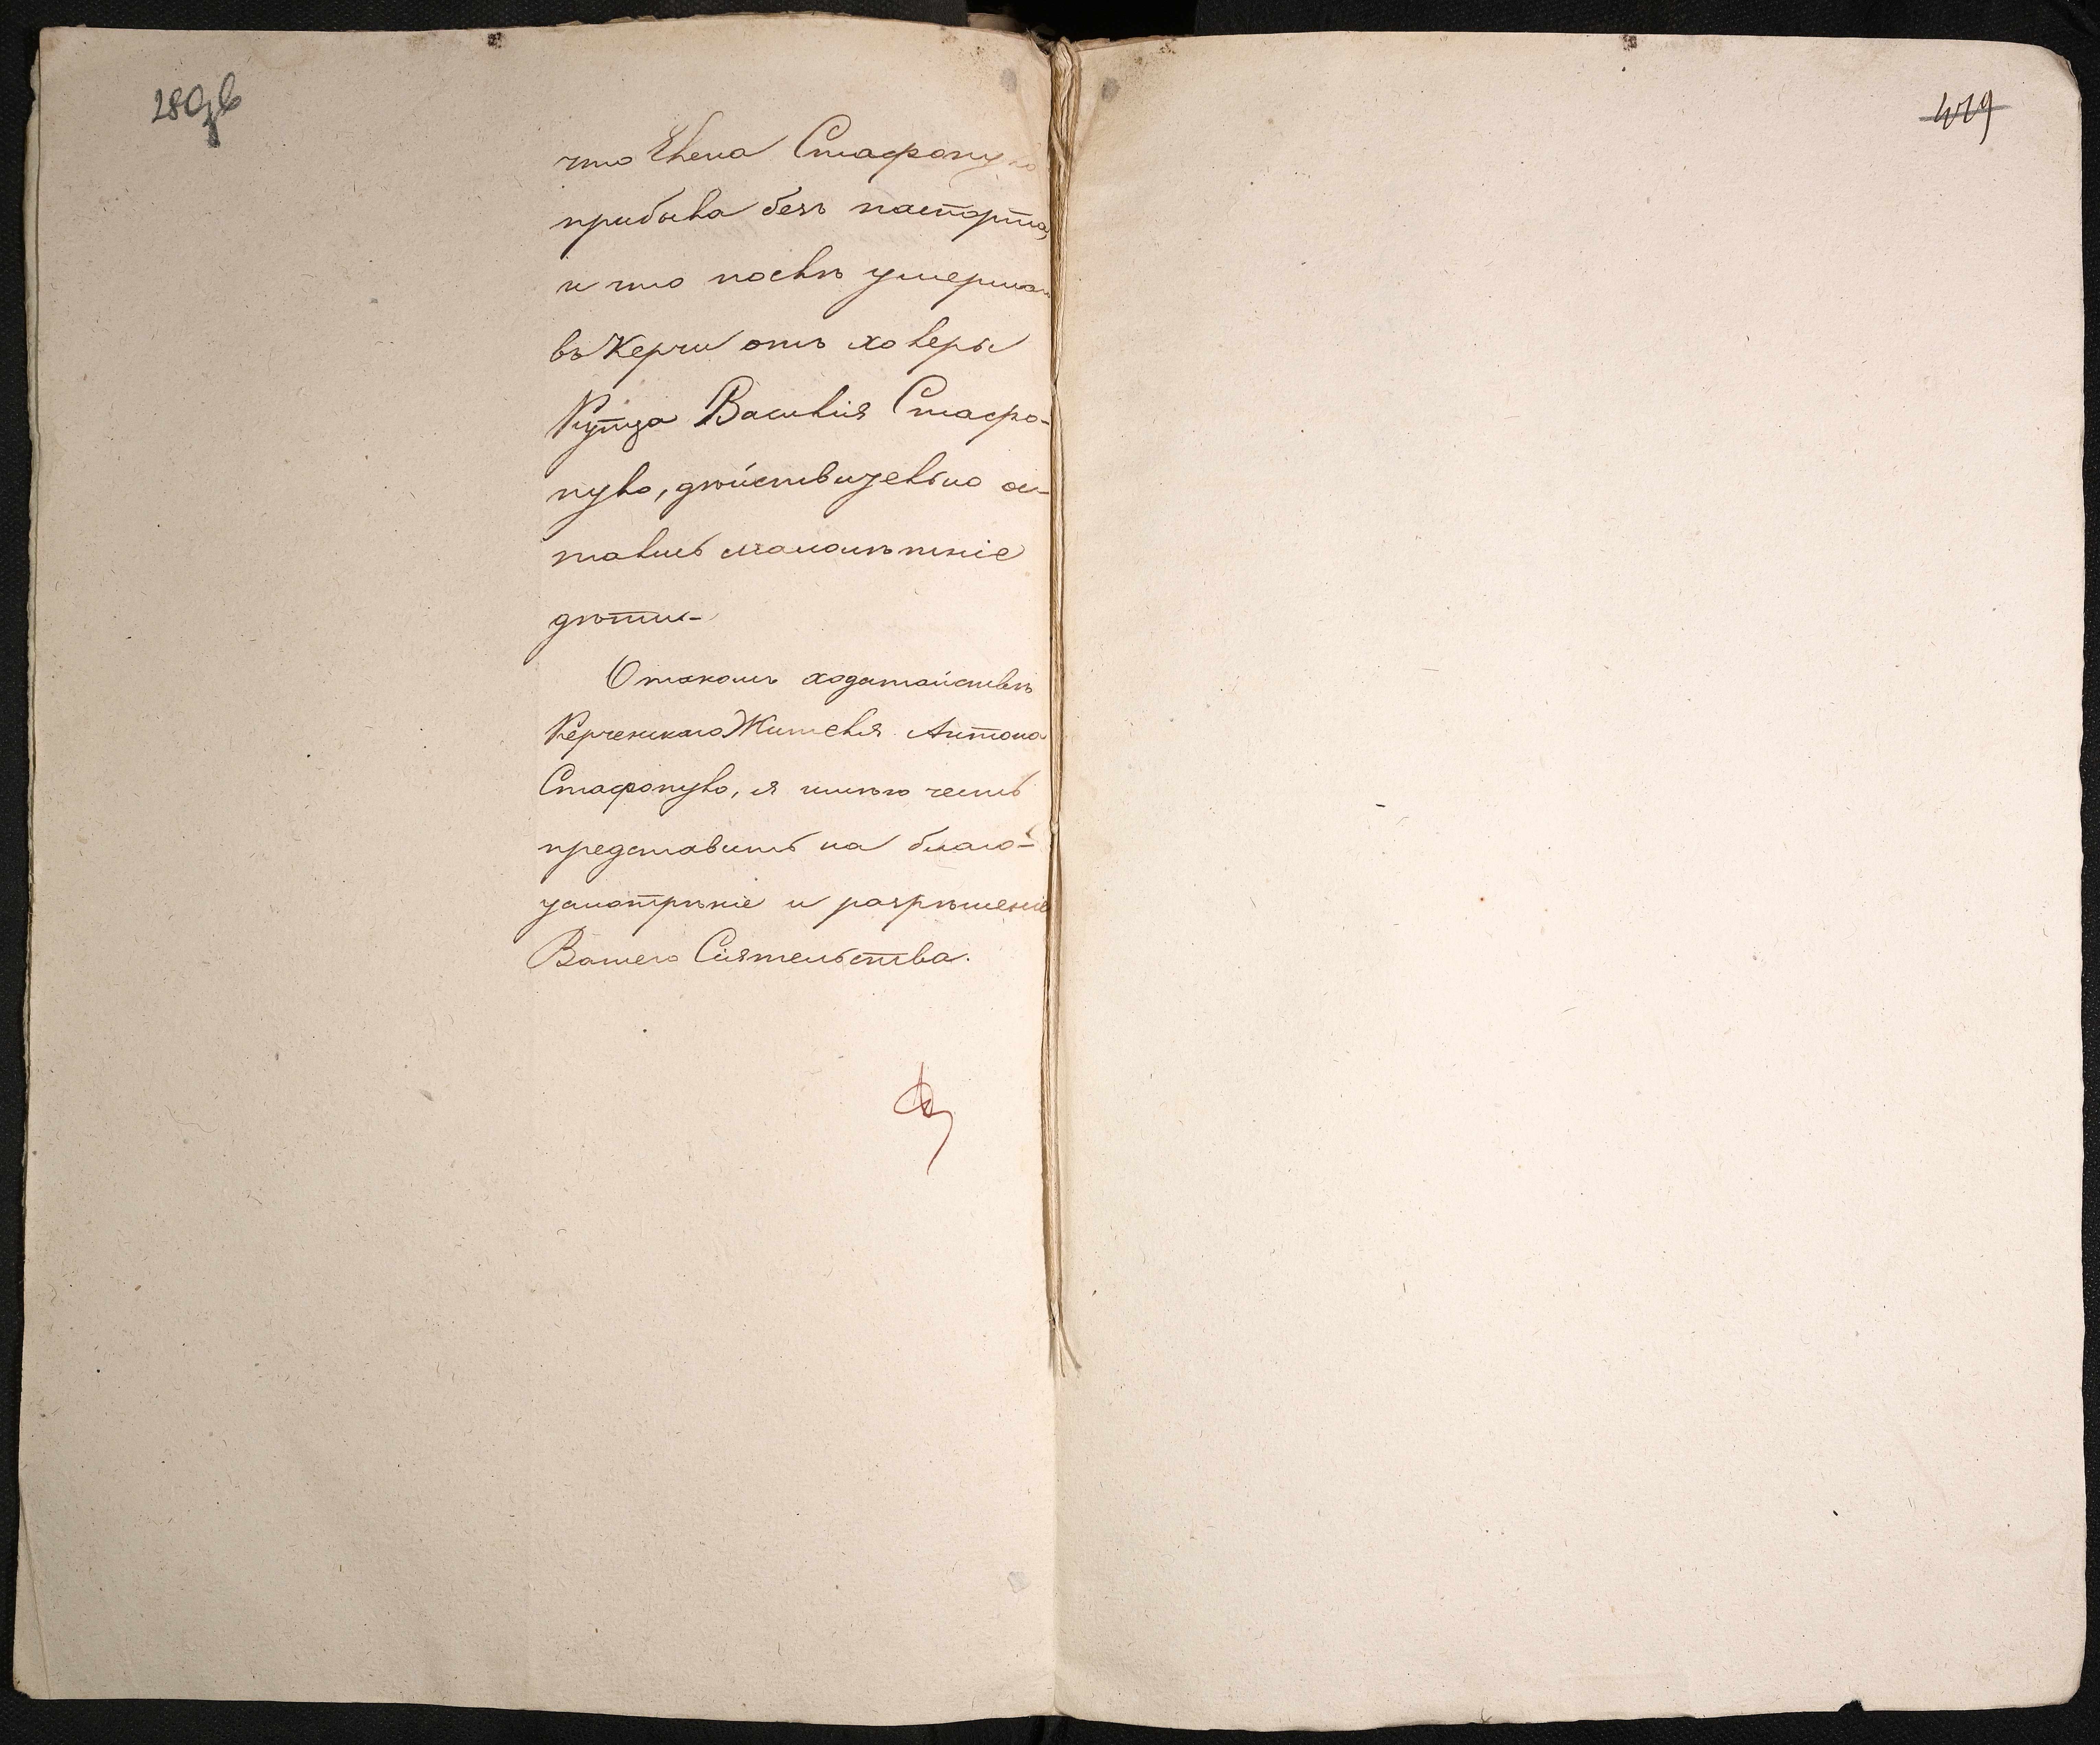 28 об
419
что Елена Стафопуло
прибыла безъ паспорта,
и что послѣ умершаго
въ Керчи отъ холеры
Купца Василія Стафо-
пуло, дѣйствительно ос-
тались малолѣтніе
дѣти.-
О такомъ ходатайствѣ
Керченскаго Жителя Антона
Стафопуло, я имѣю честь
представить на благо-
усмотрѣніе и разрѣшеніе
Вашего Сіятельства.